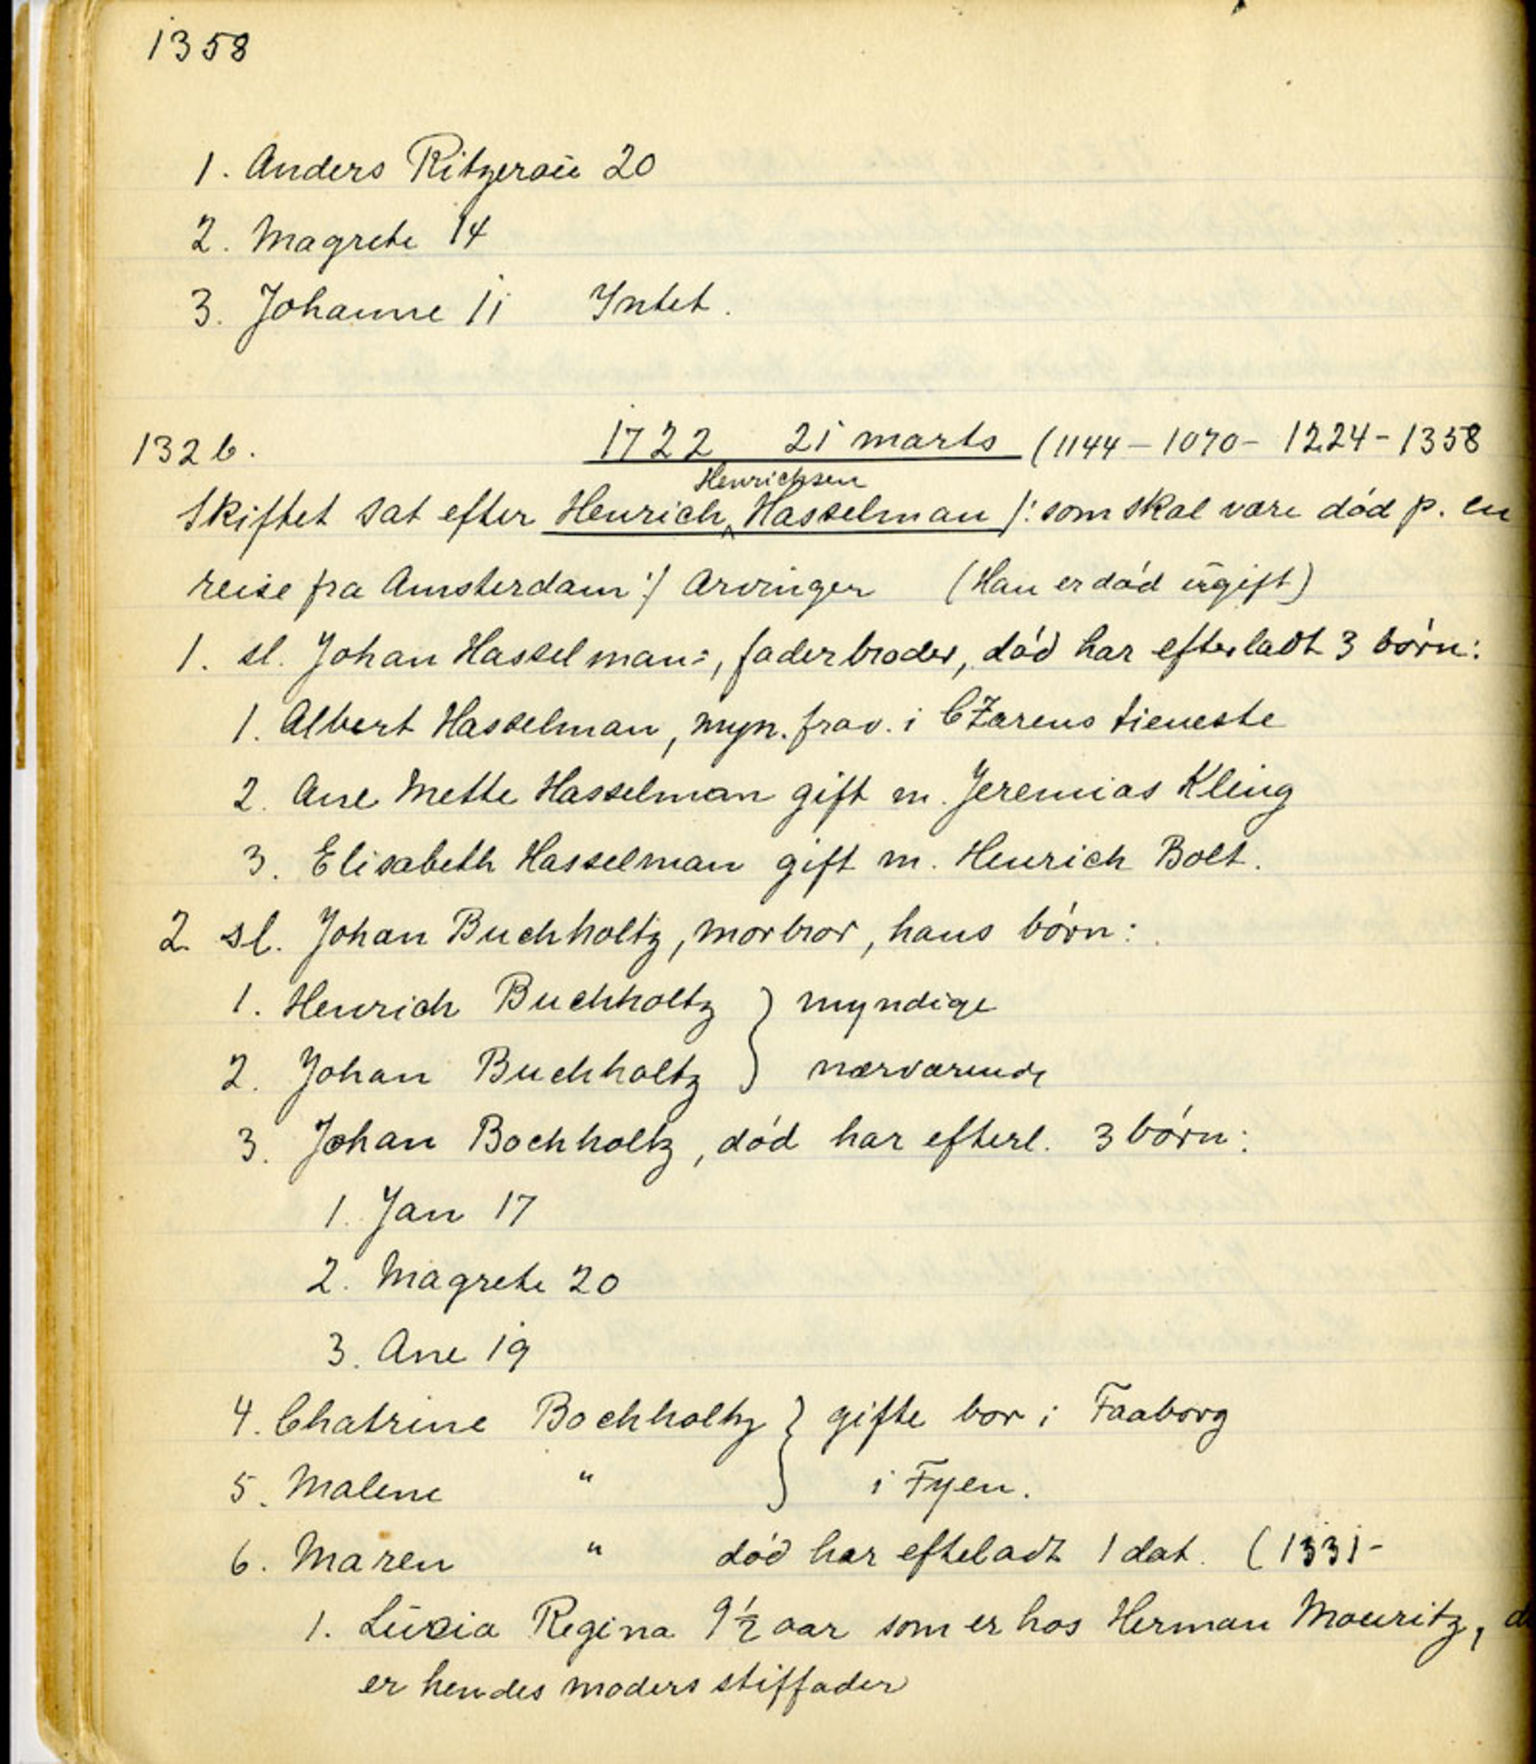 1358
1. Anders Ritzerau 20
2. Magrete 14
3. Johanne 11 Intet.
132 b. 1722 21 marts (1144 - 1070 - 1224 - 1358
Henrichsen
Skiftet sat efter Henrich ^ Hasselman /: som skal være död p. en
reise fra Amsterdam :/ Arvinger (Han er död ugift)
1. sl. Johan Hasselman:, faderbroder, död har efterladt 3 börn:
1. Albert Hasselman, myn. frav. i CZarens tieneste
2. Ane Mette Hasselman gift m. Jeremias Kling
3. Elisabeth Hasselman gift m. Henrich Bolt.
2 sl. Johan Buchholtz, morbror, hans börn:
1. Henrich Buchholtz } myndige
2. Johan Buchholtz } nærværende
3. Johan Bochholtz, död har efterl. 3 börn:
1. Jan 17
2. Magrete 20
3. Ane 19
4. Chatrine Bochholtz } gifte bor i Faaborg
5. Malene " } i Fyen.
6. Maren " död har efteladt 1 dat. (1331-
1. Lucia Regina 9½ aar som er hos Herman Mouritz,
er hendes moders stiffader